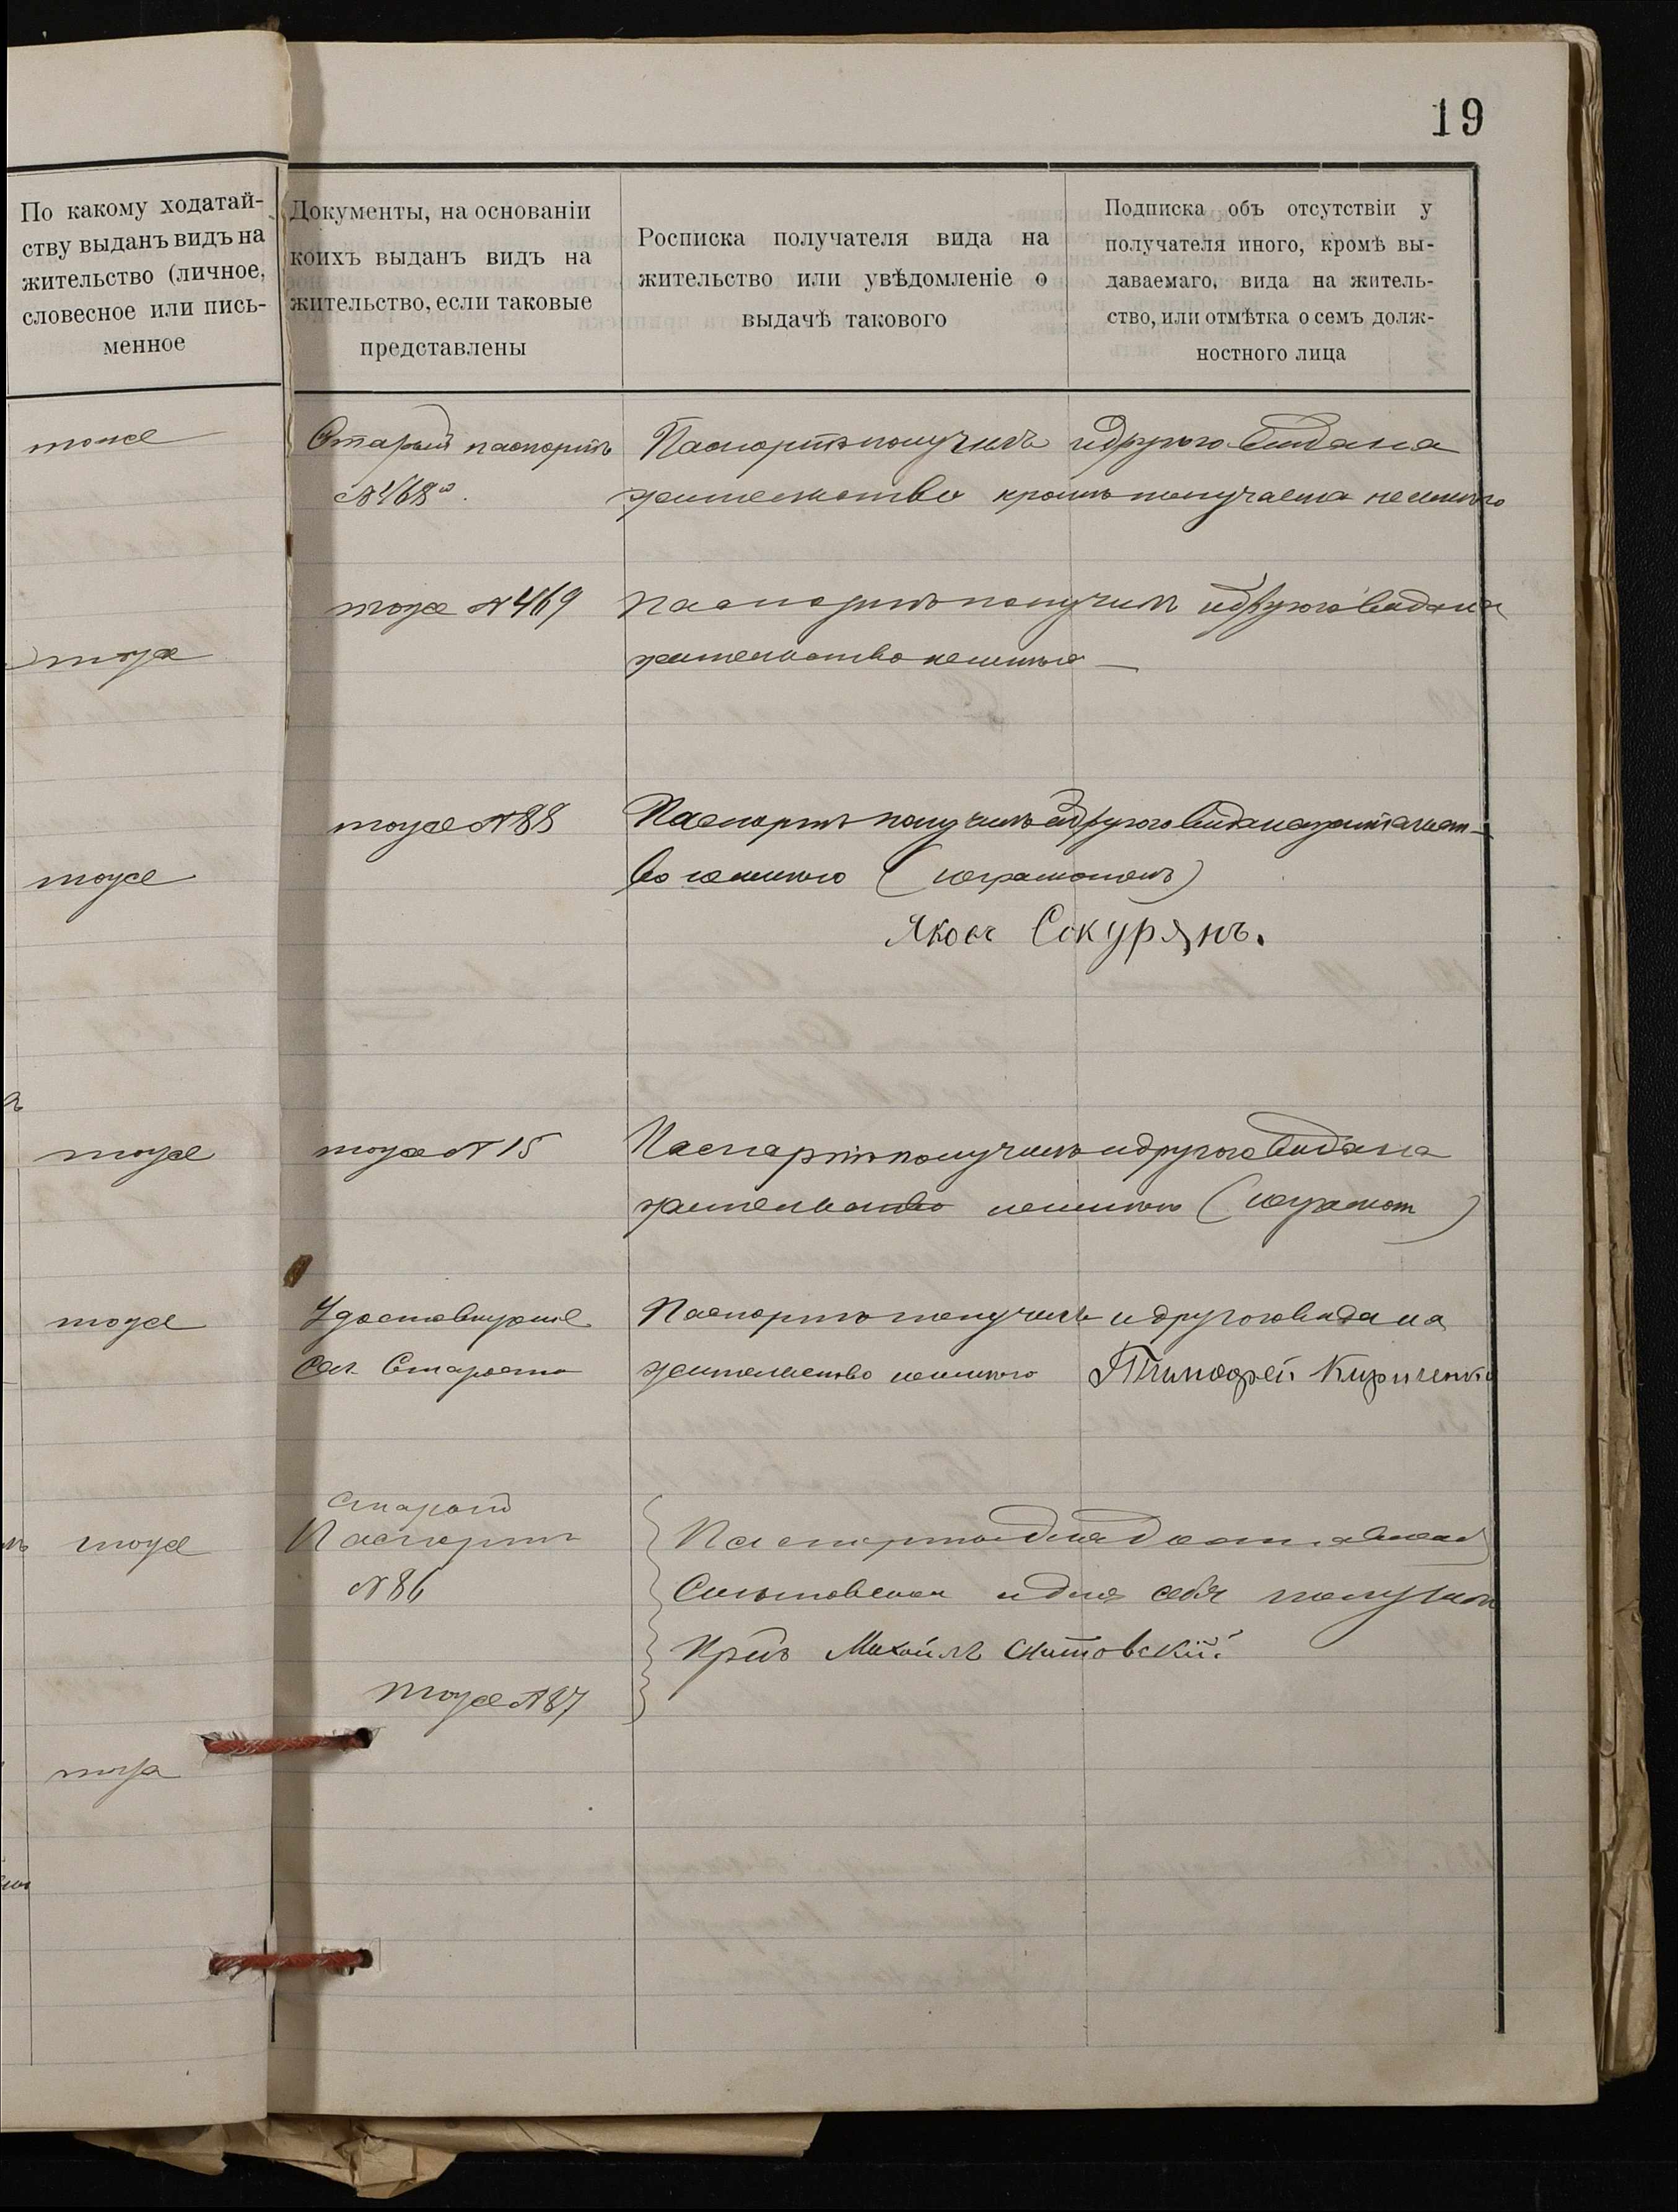 19
По какому ходатай-
ству выданъ видъ на
жительство (личное,
словесное или пись-
менное
Документы, на основаніи
коихъ выданъ видъ на
жительство, если таковые
представлены
Росписка получателя вида на
жительство или увѣдомленіе о
выдачѣ такового
Подписка объ отсутствіи у
получателя иного, кромѣ вы-
даваемаго, вида на житель-
ство, или отмѣтка о семъ долж-
ностного лица
тоже
Старый паспортъ
№ 468
Паспортъ получилъ и другого вида на
жительство кромѣ получаема не имѣю
тоже
тоже № 469
паспортъ получилъ и другого вида на
жительство не имѣю
тоже
тоже № 88
Паспортъ получилъ и другого вида на жительст-
во не имѣю (неграмотенъ)
Яковъ Сокурянъ.
тоже
тоже № 15
Паспортъ получилъ и другого вида на
жительство не имѣю (неграмот)
тоже
Удостовѣреніе
Сел. Старосты
Паспортъ получилъ и другого вида на
жительство не имѣю Тимофей Кириченко
тоже
старый
Паспортъ
№ 86
Паспорты для доставленія
и для себя получилъ
Михаилъ Ситовскій
тоже № 87
тоже